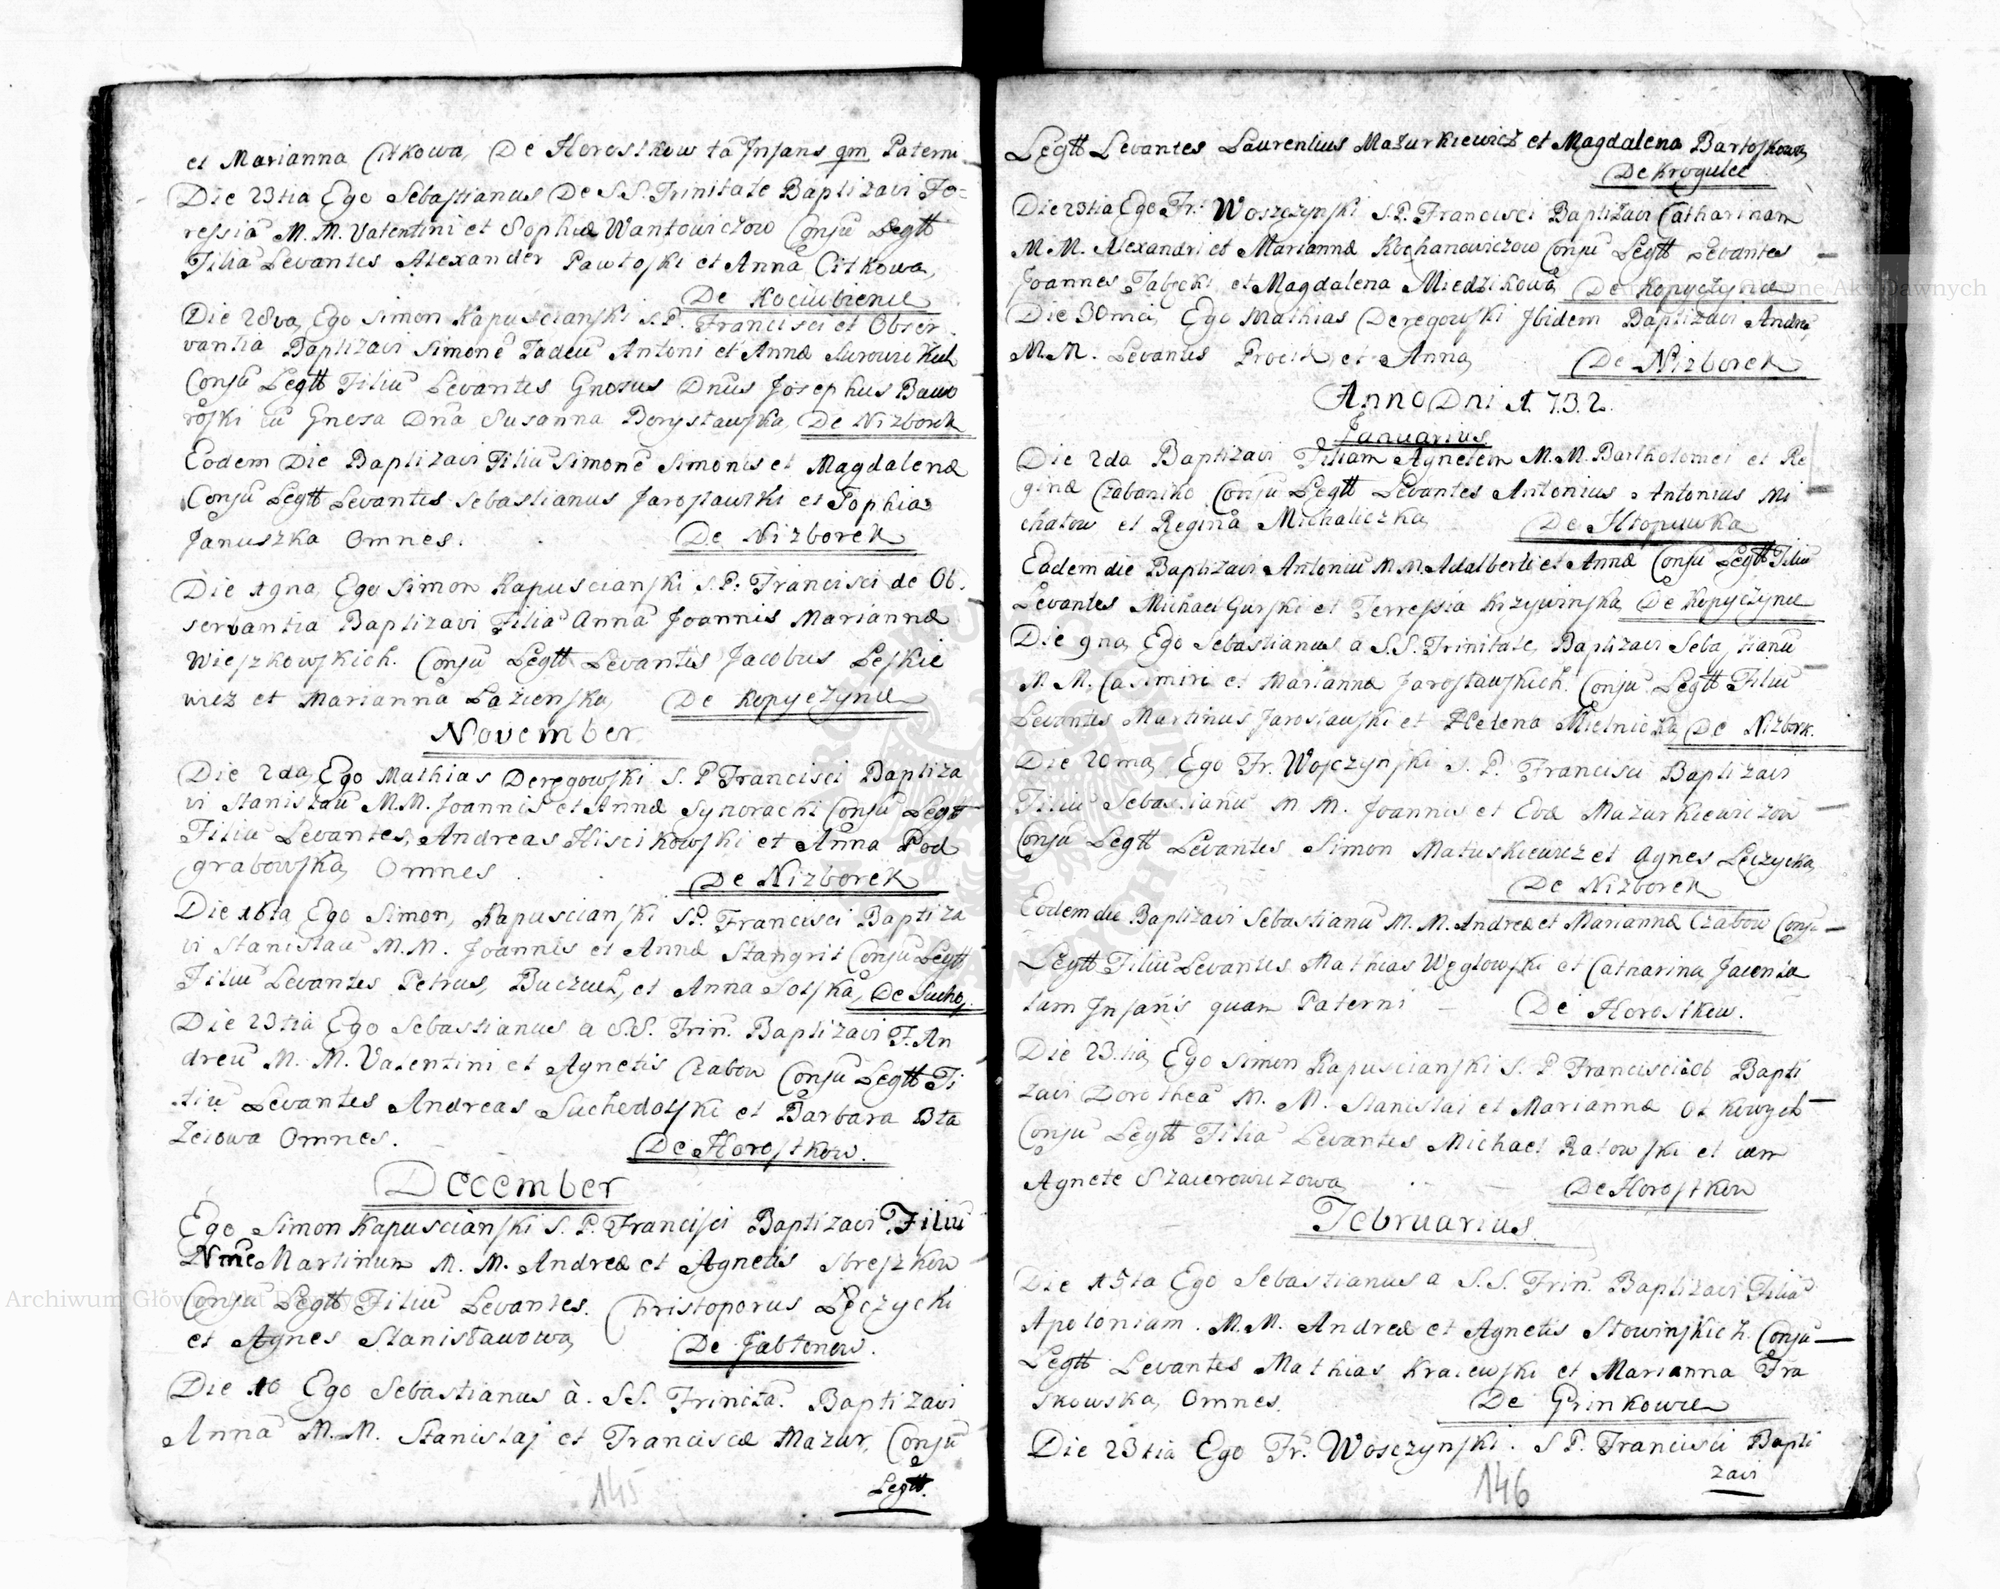 et Marianna Citkowa, De Horostkow ta Infans qm Paterni
Die 23tia Ego Sebastianus De S.S. Trinitate Baptizavi Te=
ressiā M.M. Valentini et Sophiæ Wantowiczow Conjū Legtt
Filiā Levantes Alexander Pawłoski et Anna Citkowa,
De Kociubience
Die 28va, Ego Simon Kapuscianski S.P. Francisci et Obser-
vantia Baptizavi Simonē Tadeū Antoni et Annæ
Conjū Legtt Filiū Levantes Gnosus Dnus Josephus Bawo
roski cū Gnosa Dna Susanna Borysławska, De Nizborek
Eodem Die Baptizavi Filiū Simonē Simonis et Magdalenæ
Conjū Legtt Levantes Sebastianus Jarosławski et Sophia
Januszka Omnes.
De Nizborek
Die 19na, Ego Simon Kapuscianski S.P. Francisci de Ob-
servantia Baptizavi Filiā Annā Joannis Mariannæ
Wieszkowskich. Conjū Legtt Levantes Jacobus Leskie
wicz et Marianna Łazienska, De Kopyczynce
November
Die 2da, Ego Mathias Deregowski S. P Francisci Baptiza
vi Stanislaū M.M. Joannis et Annæ Synoracki Conjū Legtt
Filiū Levantes, Andreas Hiscikowski et Anna Pod
grabowska, Omnes
De Nizborek
Die 16ta, Ego Simon, Kapuscianski S.P. Francisci Baptiza
vi Stanislaū M.M. Joannis et Annæ Stangrit Conjū Legtt
Filiū Levantes Petrus, et Anna Solska, De Sucho
Die 23tia Ego Sebastianus a S.S. Trin. Baptizavi F. An
dreū M. M. Valentini et Agnetis Czabow Conjū Legtt Fi
liū Levantes Andreas Suchodolski et Barbara Bła
Omnes.
De Horostkow.
December
Ego Simon Kapuscianski S. P. Francisci Baptizavi Filiū
Nme Martinum M. M. Andreæ et Agnetis Streszkow
Conjū Legtt Filiū Levantes. Christoporus Łęczycki
et Agnes Stanisławowa, De Jabłonow.
Die 10 Ego Sebastianus à. S.S. Trinita. Baptizavi
Annā M.M. Stanislaj et Franciscæ Mazur, Conjū
Legtt.
145
Legtt Levantes Laurentius Mazurkiewicz et Magdalena Bartoskowa,
De Krogulec
Die 23tia Ego Fr: Woszczynski S.P. Francisci Baptizavi Catharinam
M M. Alexandri et Mariannæ Kochanowiczow Conjū Legtt Levantes
Joannes et Magdalena Miedzikowa De Kopyczynce
Die 30ma, Ego Mathias Deregowski Ibidem Baptizavi
M.M. Levantes et Anna, De Nizborek
Anno Dni 1.7.3.2.
Januarius
Die 2da Baptizavi Filiam Agnetem M.M. Bartholomei et Re
ginæ Czabanko Conjū Legtt Levantes Antonius Antonius Mi
chałow et Regina Michaliczka
De Hłopuwka
Eadem die Baptizavi Antoniū M M. Adalberti et Annæ Conjū Legtt Filiū
Levantes Michael Gurski et Terressia Krzywinska, De Kopyczynce
Die 9na, Ego Sebastianus a S.S. Trinitate, Baptizavi Sebastianū
M. M. Casimiri et Mariannæ Jarosławskich. Conjū Legtt Filiū
Levantes Martinus Jarosławski et Helena Mielnicka De Nizbork.
Die 20ma, Ego Fr. Wosczynski S. P. Francisci Baptizavi
Filiū Sebastianū M M. Joannis et Evæ Mazurkiewiczow
Conjū Legtt Levantes Simon Matuskiewicz et Agnes Łeczycka,
De Nizborek
Eodem die Baptizavi Sebastianū M. M. Andreæ et Mariannæ Czabow Conju-
Legtt Filiū Levantes Mathias Węglowski et Catharina
tam Infans quam Paterni
De Horostkow.
Die 23.tia, Ego Simon Kapuscianski S. P Francisci Ob Bapti
zavi Dorotheā M. M. Stanislai et Mariannæ Otkowych
Conjū Legtt Filiā Levantes Michael Ratowski et cum
Agnete
De Horostkow
Februarius.
Die 15ta Ego Sebastianus a S.S. Trin. Baptizavi Filiā
Apoloniam. M.M. Andreæ et Agnetis Słowinskich. Conjū
Legtt Levantes Mathias Kralewski et Marianna Fra
skowska, Omnes.
De Grinkowce
Die 23tia Ego Fr. Wosczynski. S P. Francisci Bapti
zavi
146